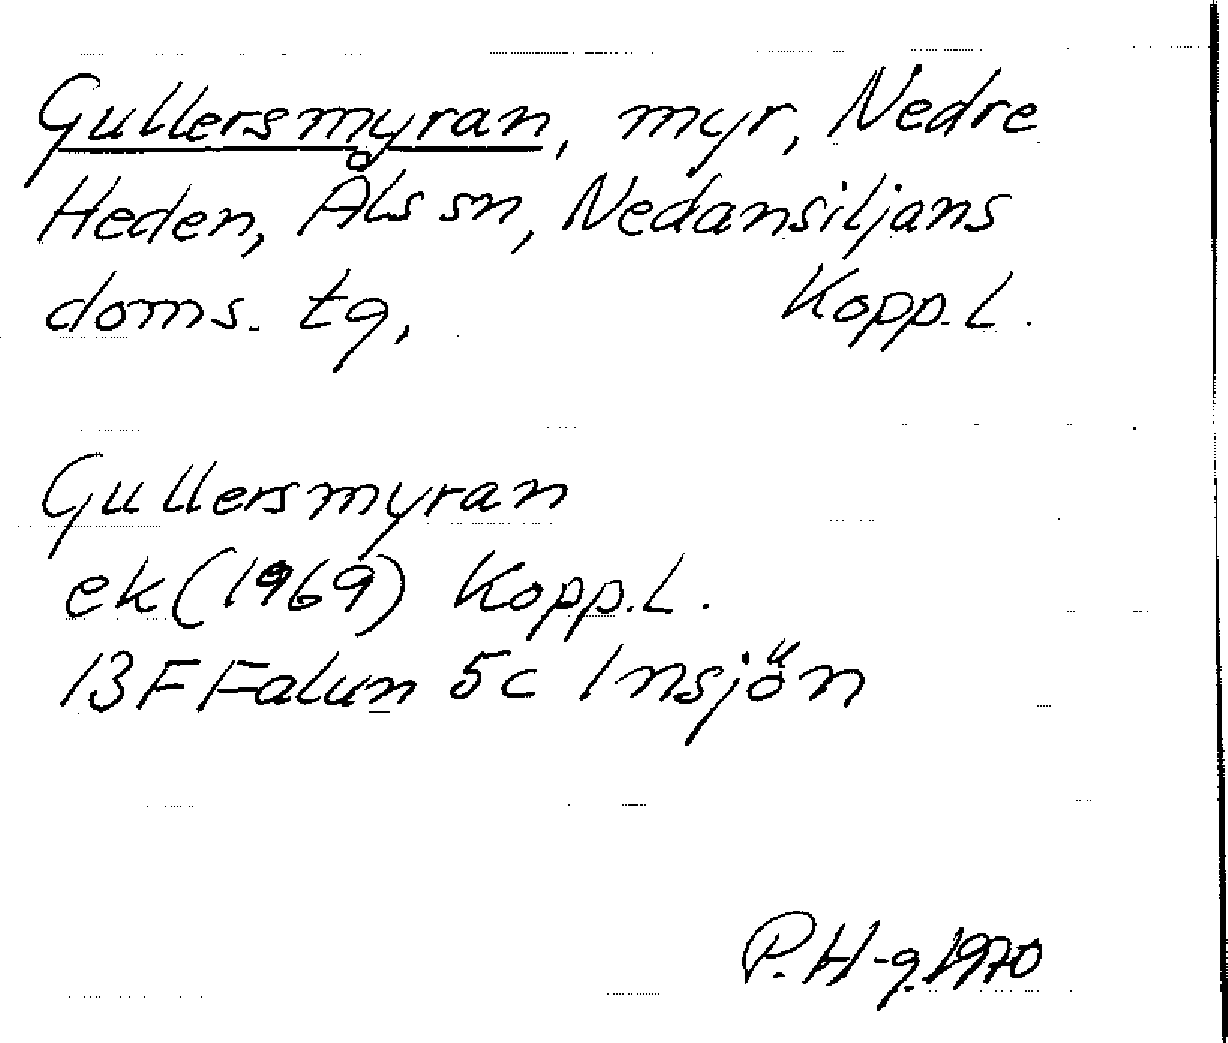 Gullersmyran, myr, Nedre
Heden, Åls sn, Nedansiljans
doms. tg, Kopp. L.
Gullersmyran
ek (1969) Kopp. L.
13F Falun 5c Insjön
P. H-g. 1970